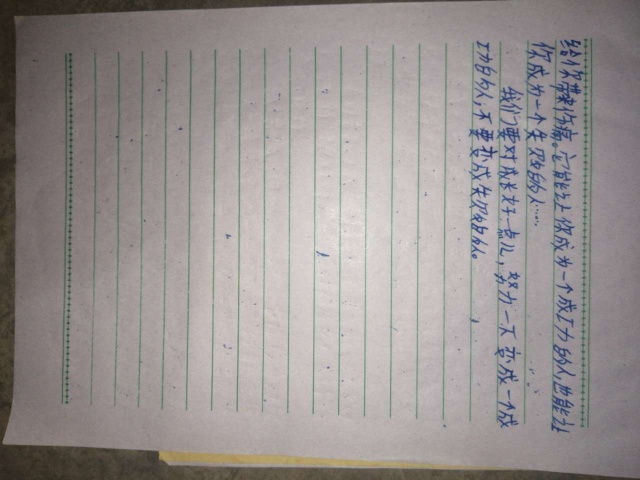 给你带来伤痛。它能让你成为一个成功的人,也能让
你成为一个失败的人……
我们要对成长好一点儿,努力一下变成一个成
功的人,不要变成失败的人。